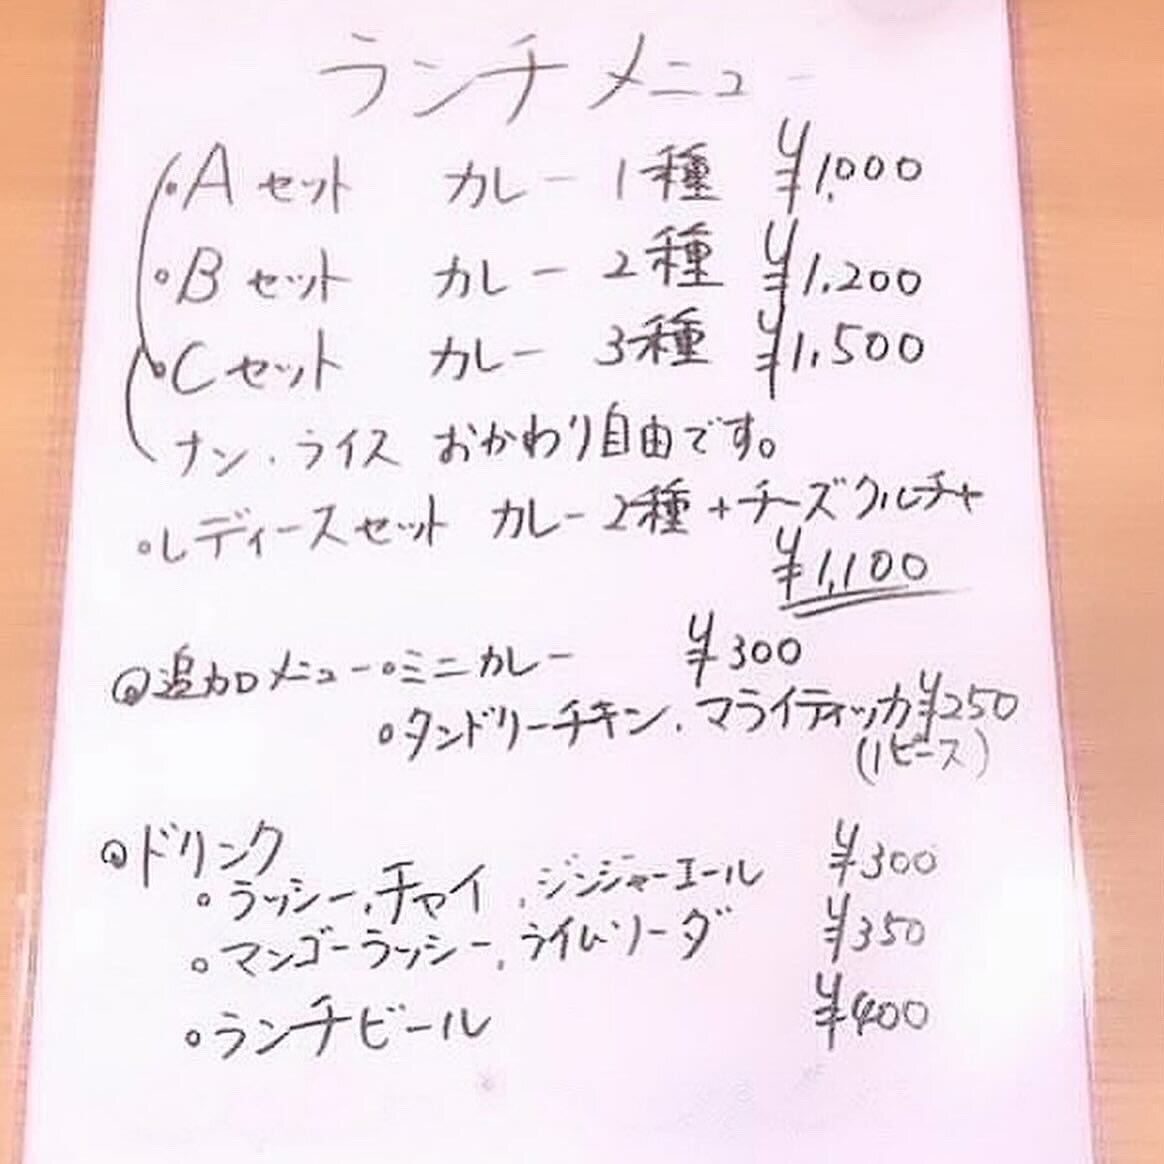 ランチメニュー
・Aセット カレー 1種 ¥1,000
・Bセット カレー 2種 ¥1,200
・Cセット カレー 3種 ¥1,500
ナン、ライス おかわり自由です。
・レディースセット カレー 2種+チーズクルチャ
¥1,100
◎追加メニュー・ミニカレー ¥300
・タンドリーチキン、マライティッカ ¥250
(1ピース)
◎ドリンク
・ラッシー、チャイ、ジンジャーエール ¥300
・マンゴーラッシー、ライムソーダ ¥350
・ランチビール ¥400